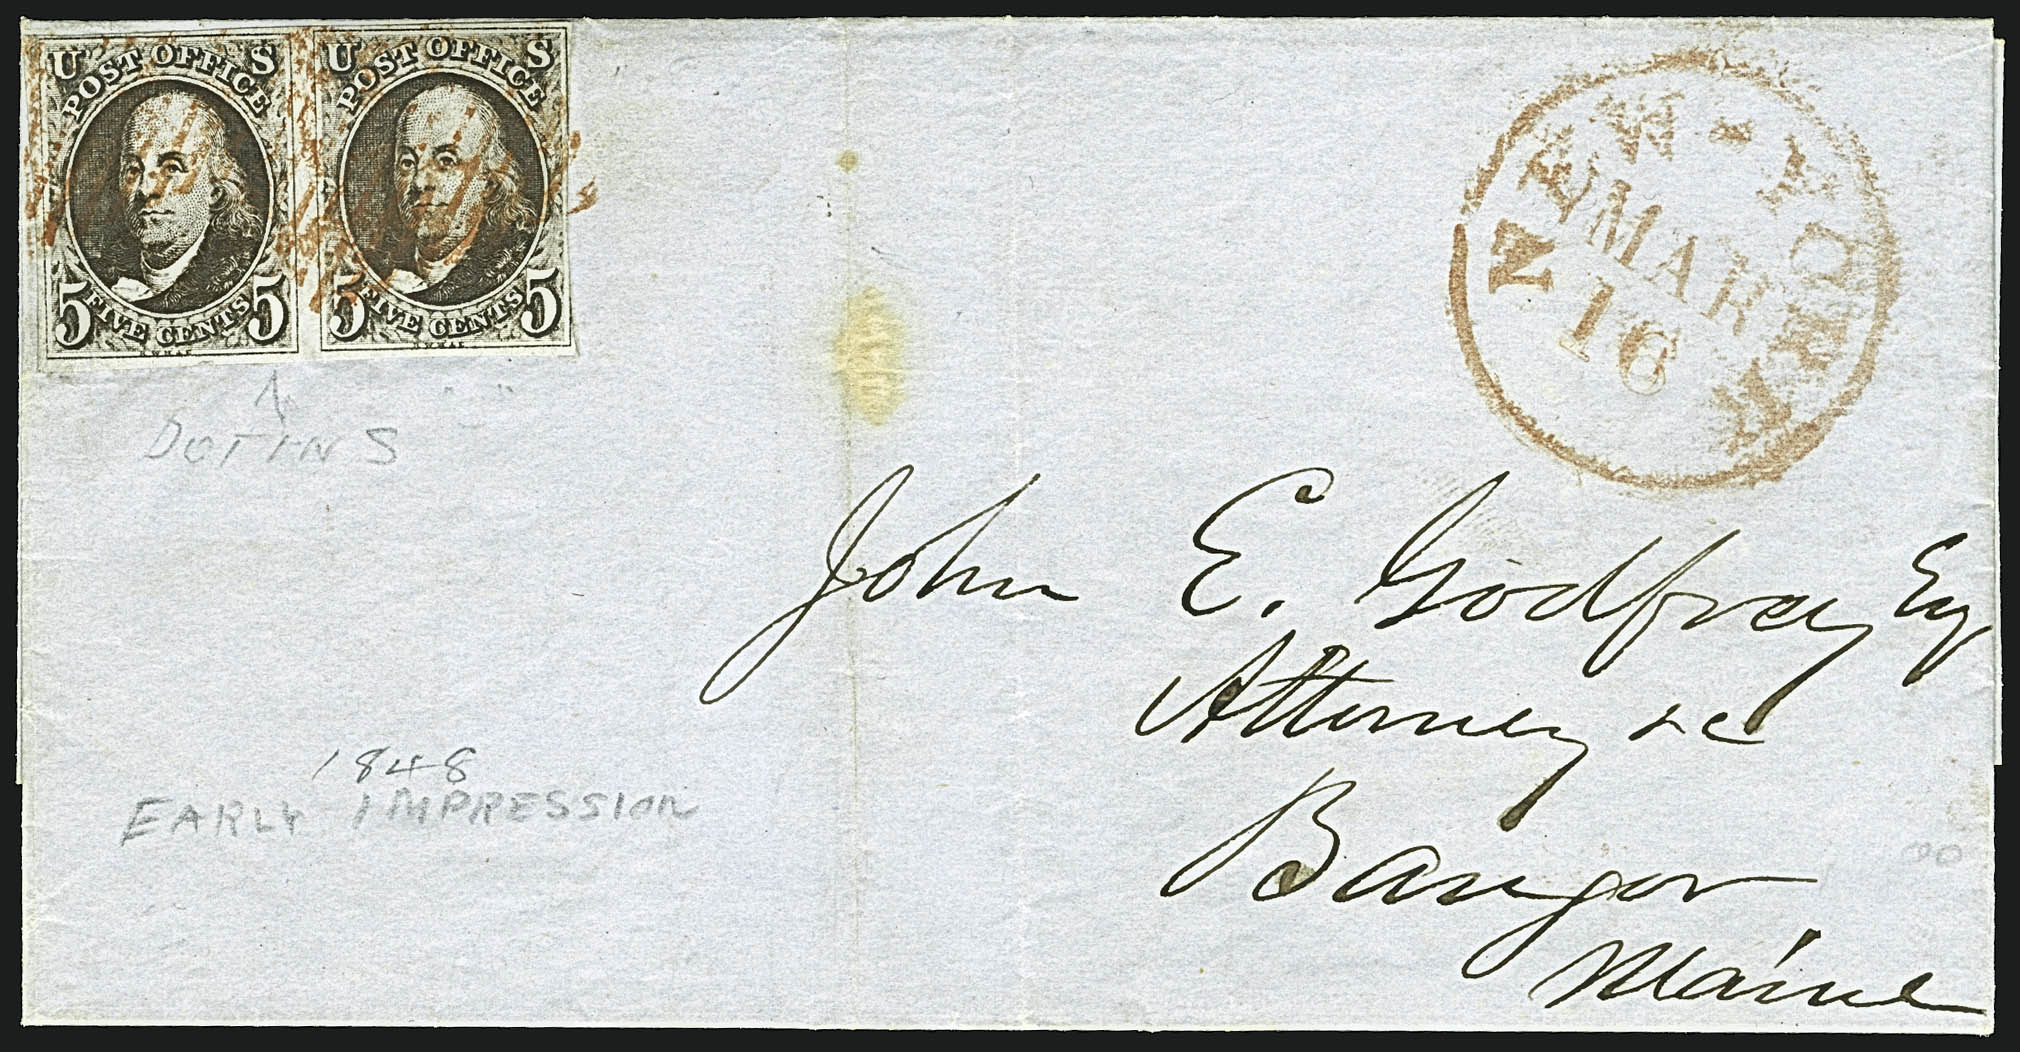 U S U S
POST OFFICE POST OFFICE
5 5 5 5
FIVE CENTS FIVE CENTS
NEW-YORK
MAR
16
DOT IN S
John E. Godfrey Esq
Attorney &c
1848
EARLY IMPRESSION
Bangor
Maine